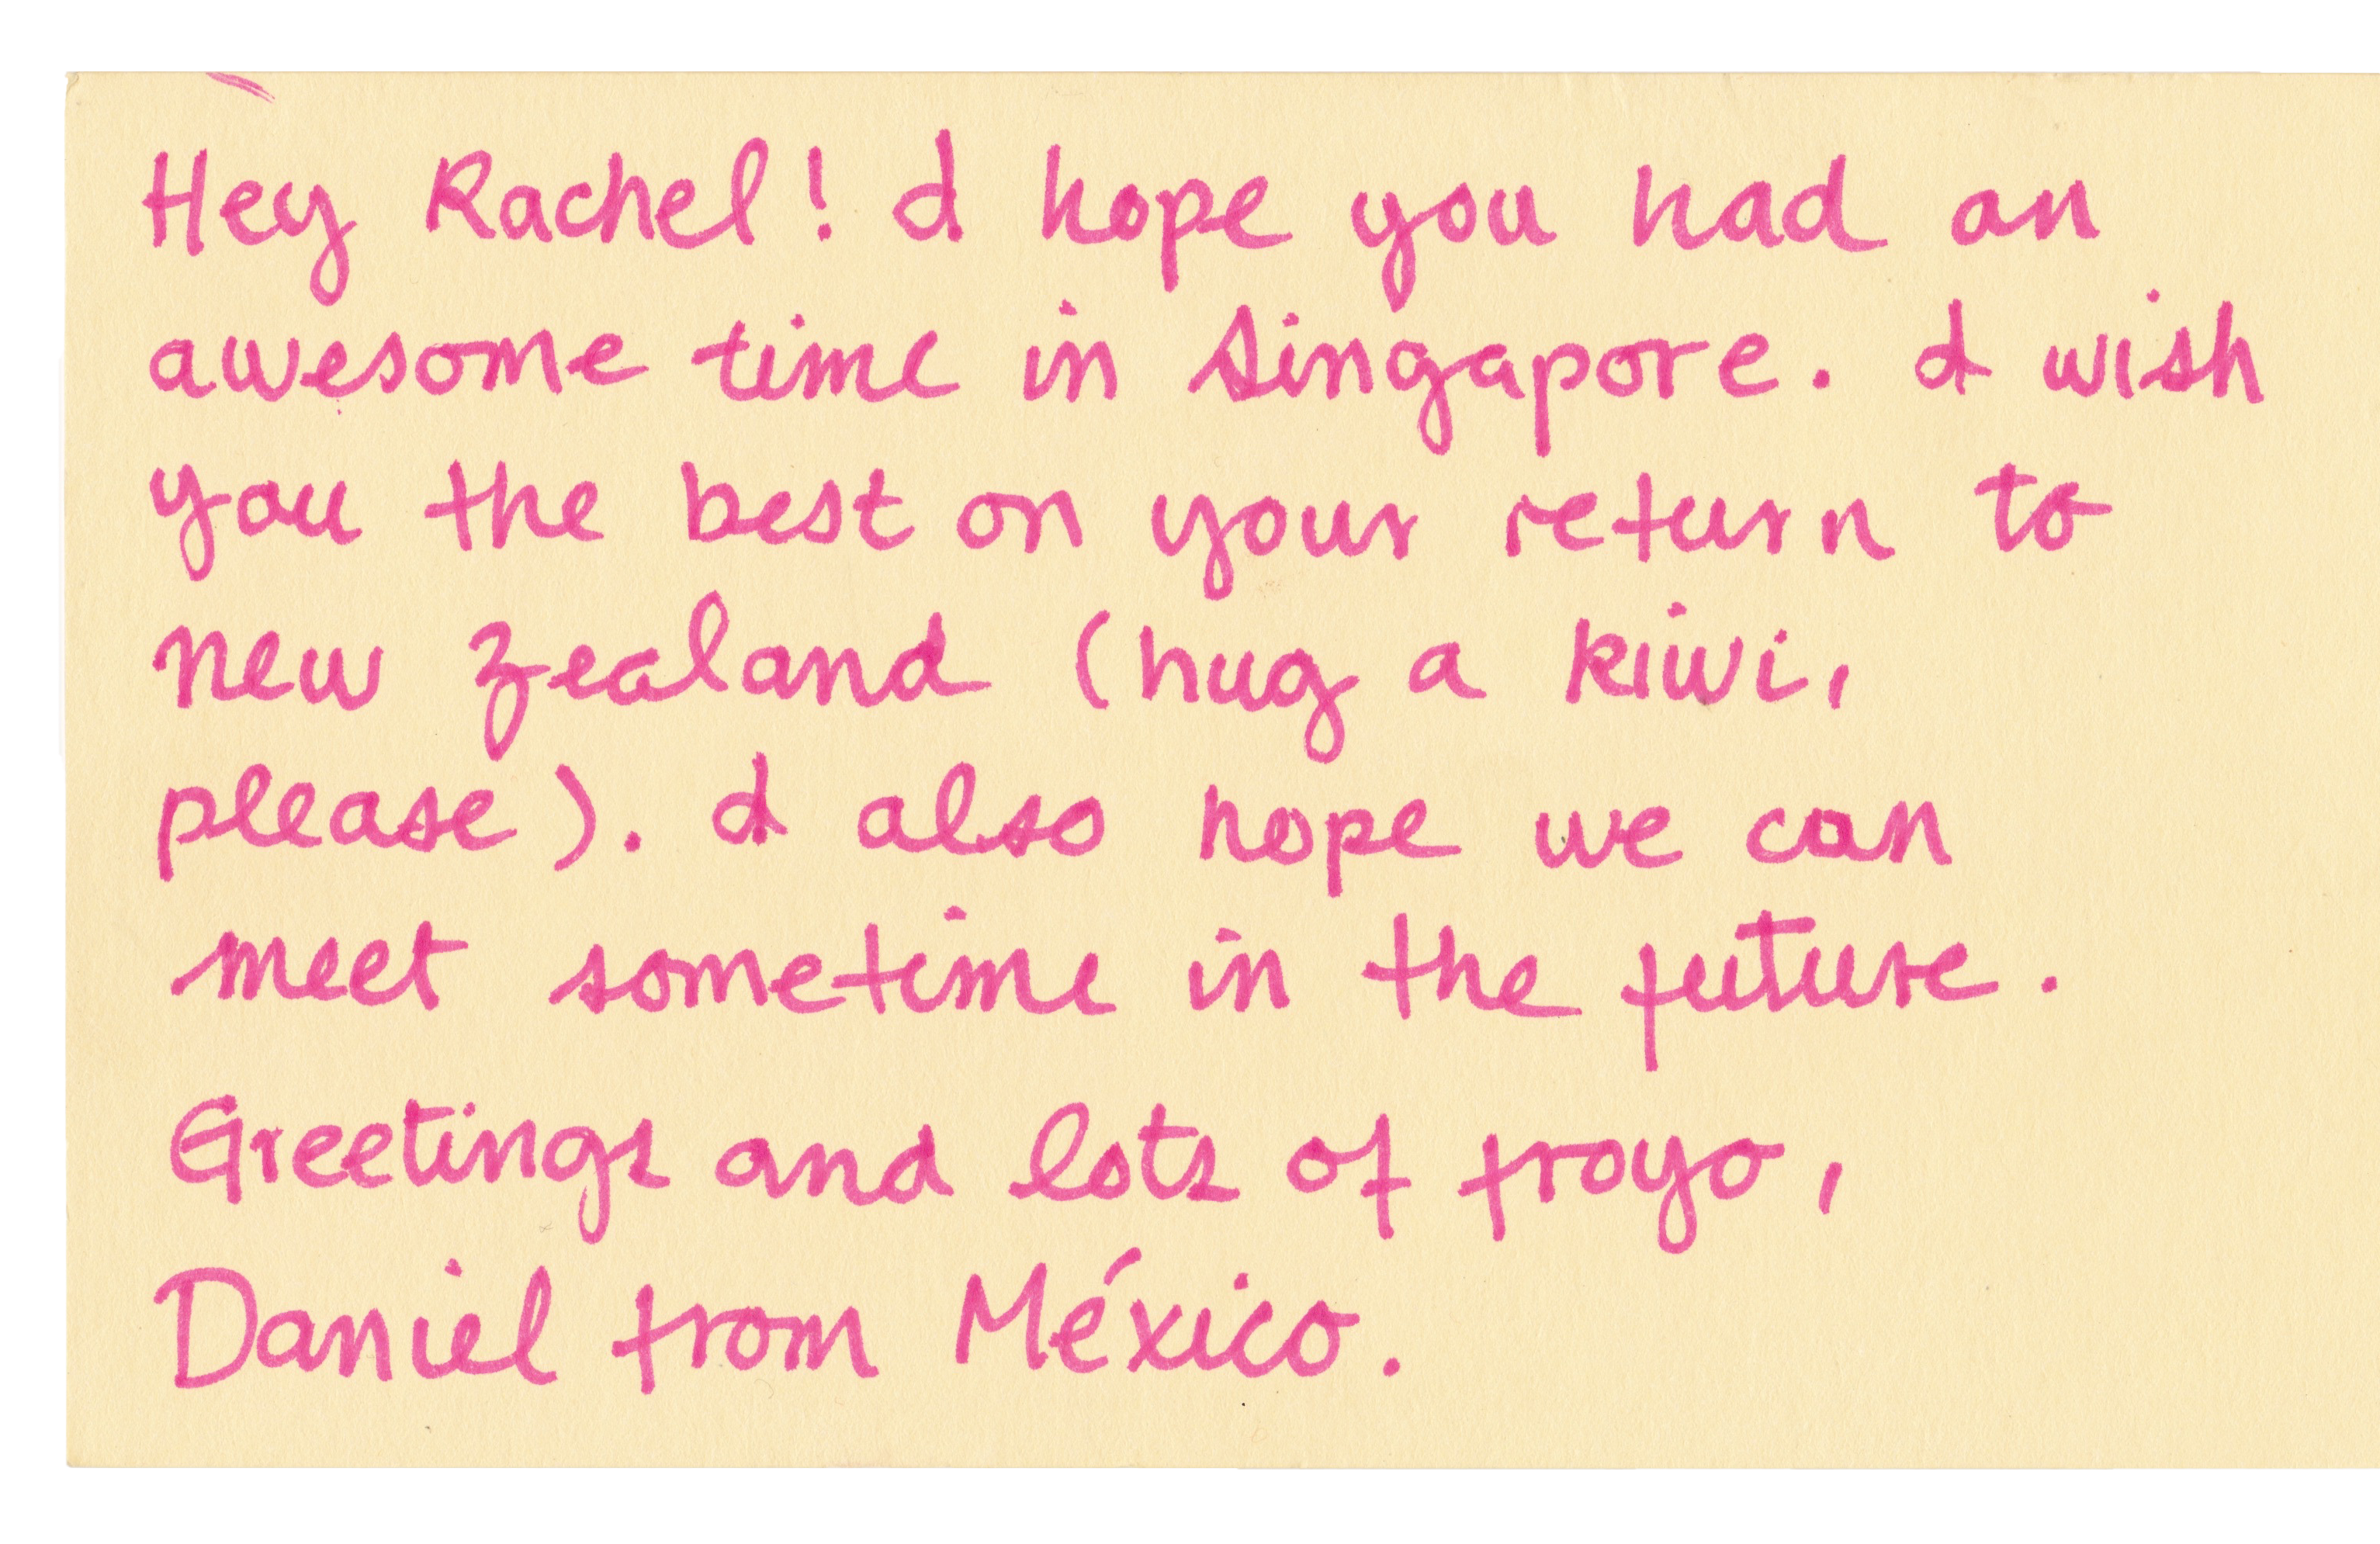 Hey Rachel! I hope you had an
awesome time in Singapore. I wish
you the best on your return to
new zealand (hug a kiwi,
please). I also hope we can
meet sometime in the future.
Greetings and lots of froyo,
Daniel from México.